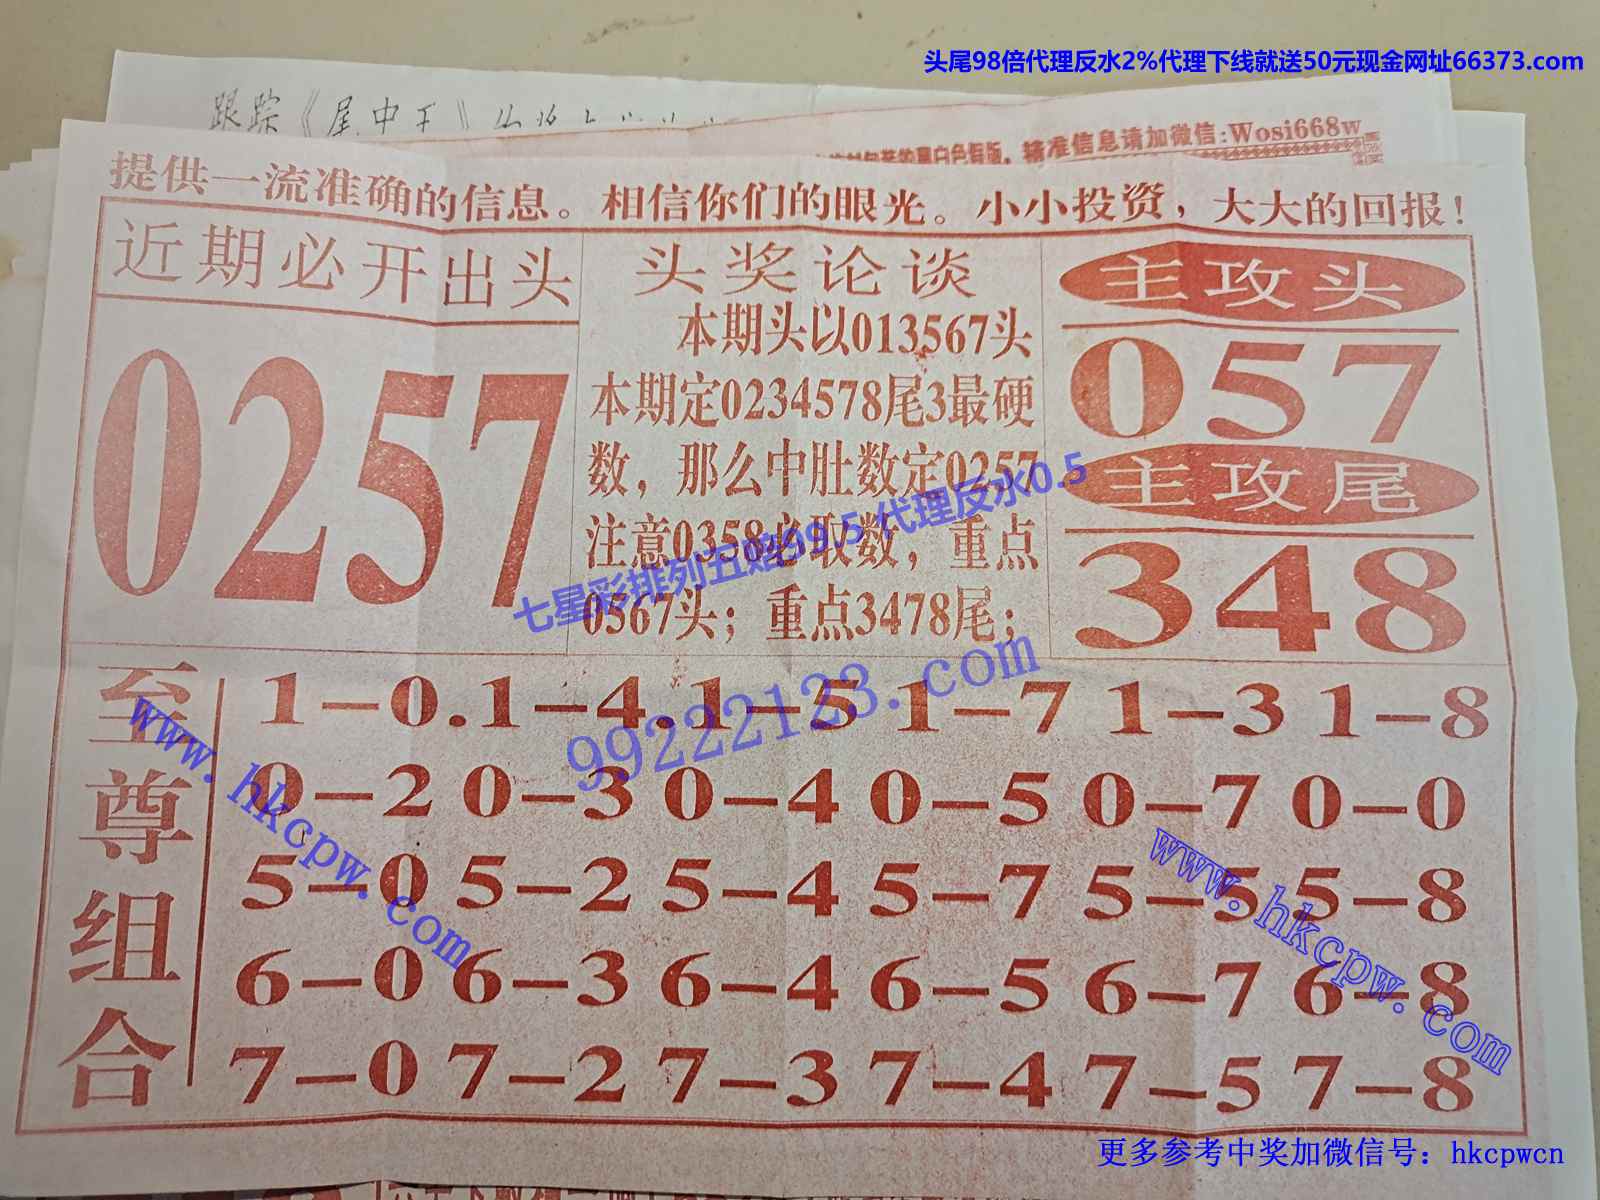 头尾98倍代理反水2%代理下线就送50元现金网址66373.com
跟踪《尾中王》
精准信息请加微信:Wosi668w
提供一流准确的信息。相信你们的眼光。小小投资，大大的回报！
近期必开出头
0257
头奖论谈
本期头以013567头
本期定0234578尾3最硬
数，那么中肚数定0257
注意0358必取数，重点
0567头；重点3478尾；
主攻头
057
主攻尾
348
七星彩排列五赔99.5 代理反水0.5
99222123.com
至尊组合
1-0.1-4.1-5 1-7 1-3 1-8
0-2 0-3 0-4 0-5 0-7 0-0
5-0 5-2 5-4 5-7 5-5 5-8
6-0 6-3 6-4 6-5 6-7 6-8
7-0 7-2 7-3 7-4 7-5 7-8
www.hkcpw.com
www.hkcpw.com
更多参考中奖加微信号：hkcpwcn